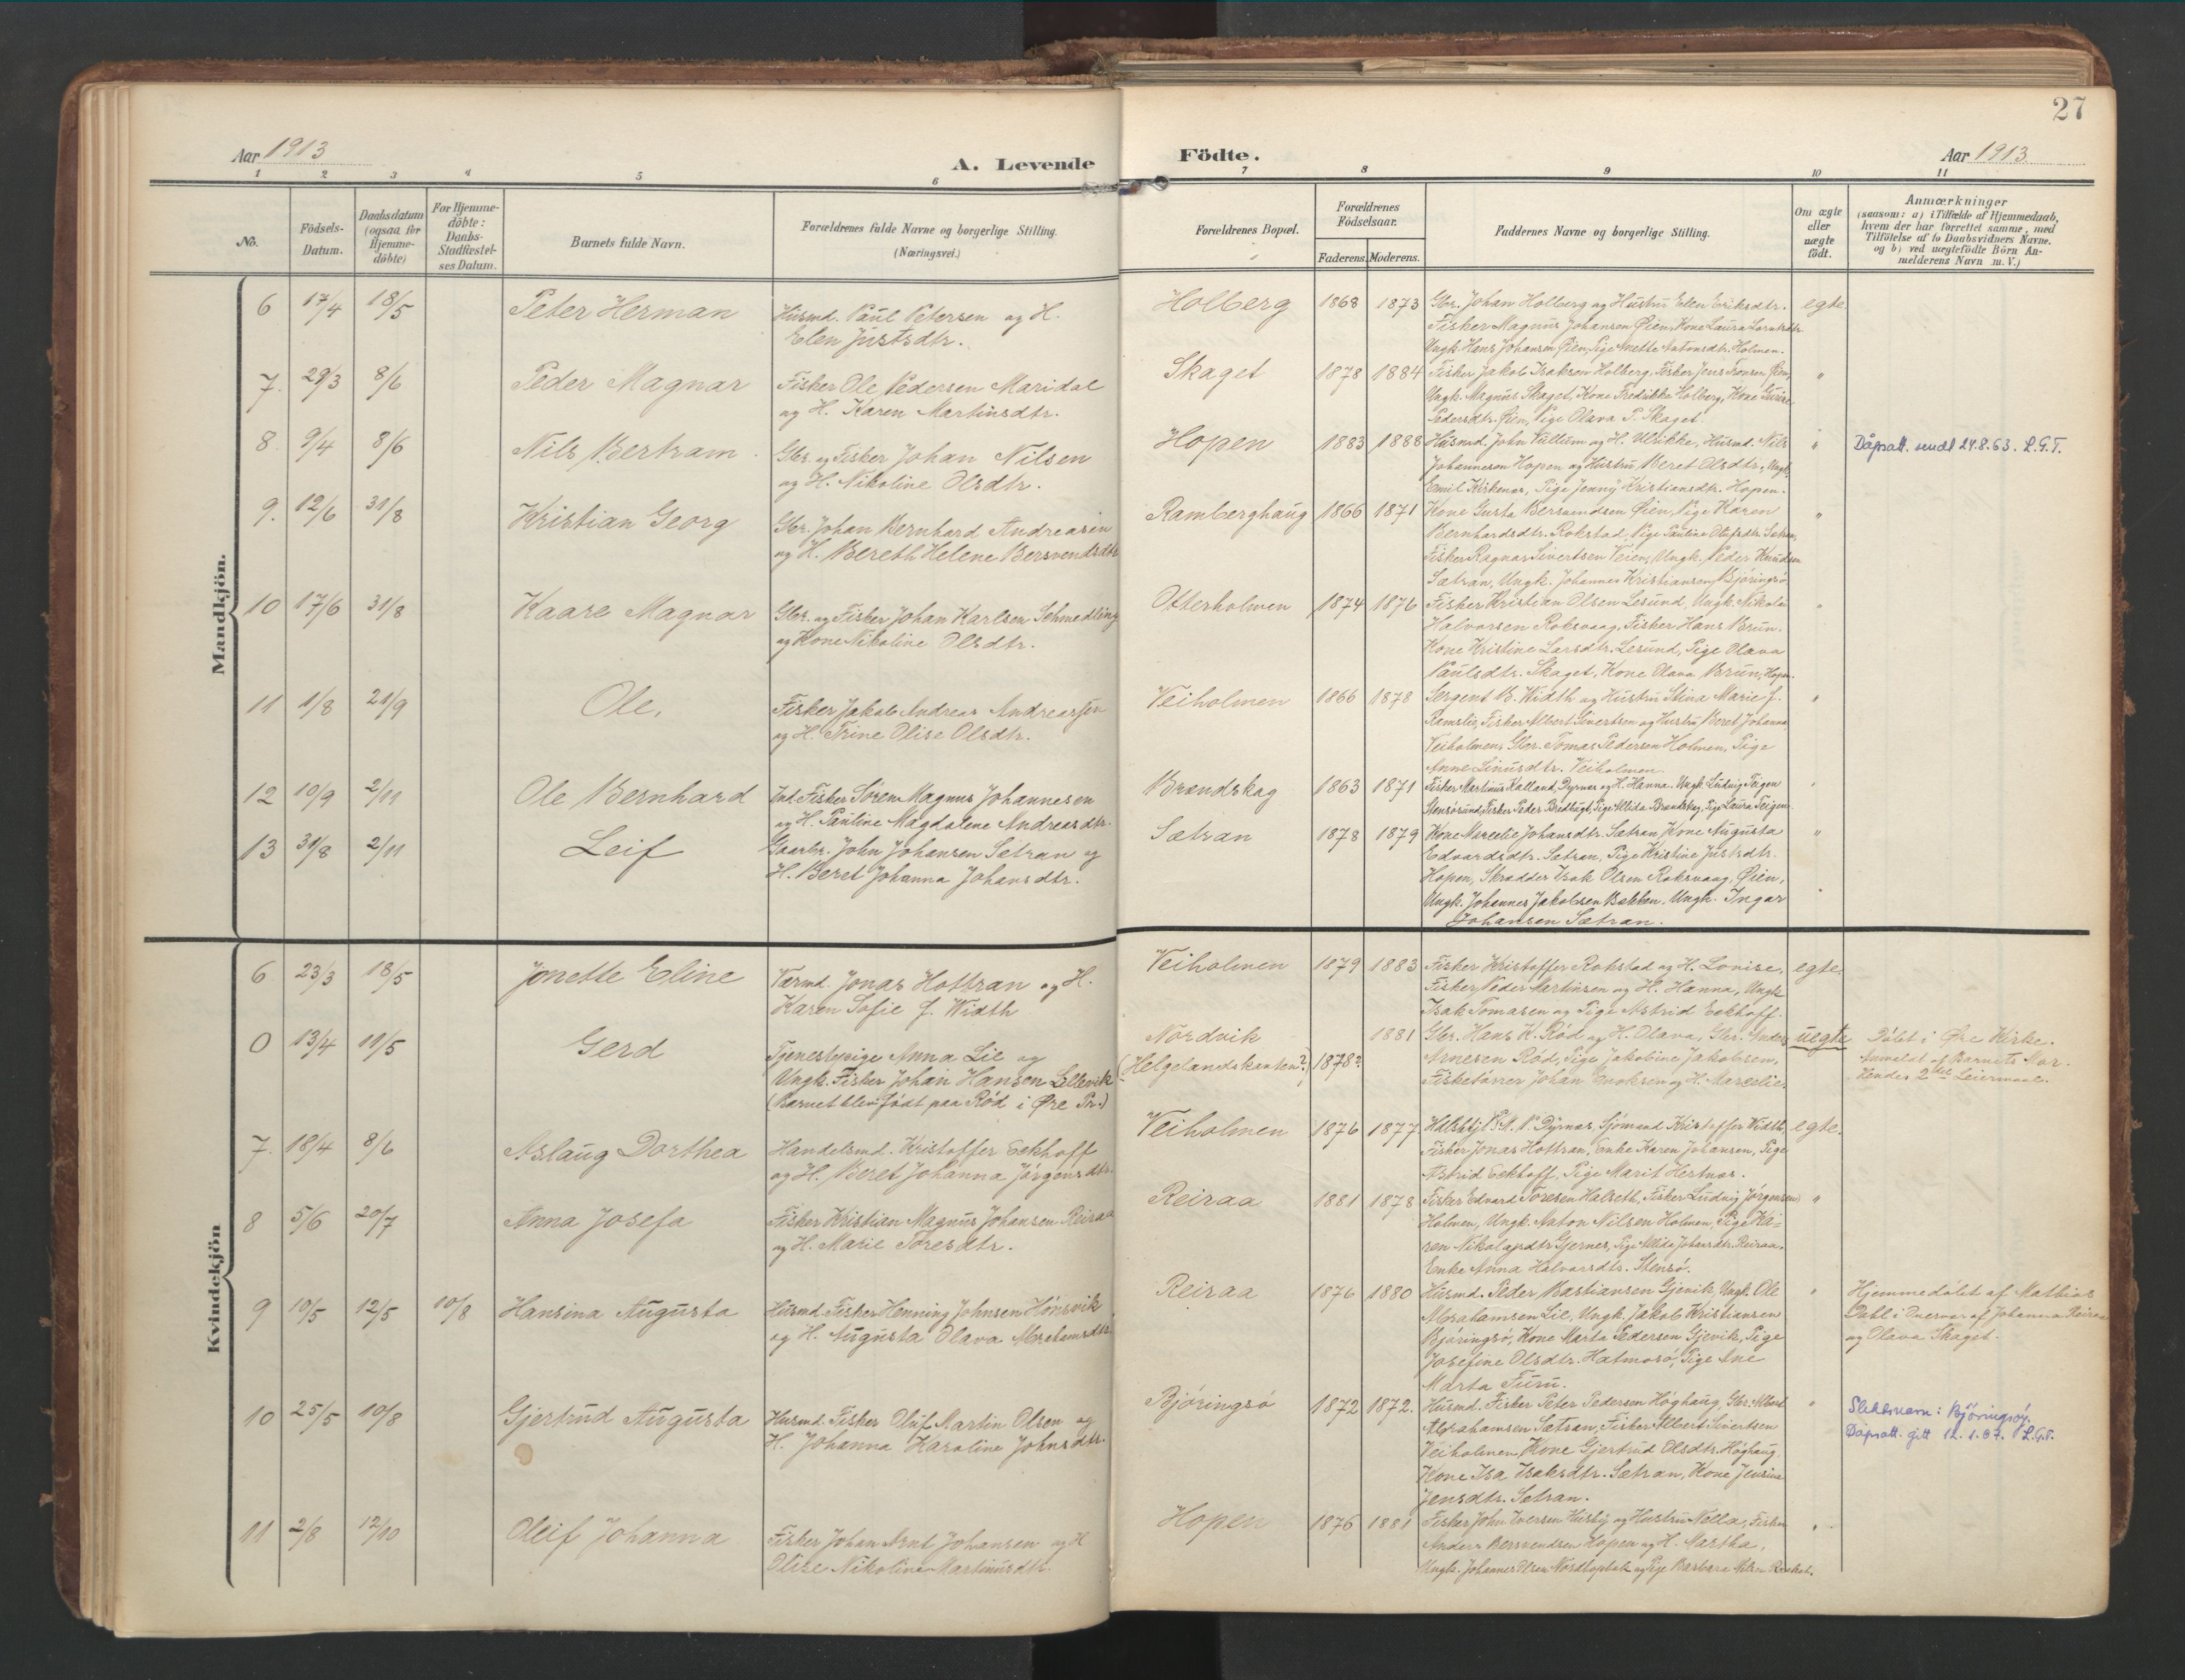 27
Aar 1913
A. Levende
Födte.
Aar 1913
1 2 3 4 5 6 7 8 9 10 11
No.
Födsels-
Datum.
Daabsdatum
(ogsaa for
Hjemme-
döbte)
For Hjemme-
döbte:
Daabs-
Stadfæstel-
ses Datum.
Barnets fulde Navn.
Forældrenes fulde Navne og borgerlige Stilling.
(Næringsvei.)
Forældrenes Bopæl.
Forældrenes
Födselsaar.
Faderens. Moderens.
Faddernes Navne og borgerlige Stilling.
Om ægte
eller
uægte
födt.
Anmærkninger
(saasom: a) i Tilfælde af Hjemmedaab,
hvem der har forrettet samme, med
Tilföielse af to Daabsvidners Navne.
og b) ved uægtefödte Börn An-
melderens Navn m. V.)
Mandkjön.
6 17/4 18/5 Peter Herman
Husmd. Paul Petersen og H.
Elen Justsdtr.
Holberg 1868 1873
Gbr. Johan Holberg og Hustru Elen Eriksdtr.
Fisker Magnus Johansen Øien, Kone Laura Lorntsdtr.
Ungk. Hans Johansen Øien, Pige Anette Antonsdtr. Holmen.
egte.
7. 29/3 8/6 Peder Magnar
Fisker Ole Pedersen Maridal
og H. Karen Martinsdtr.
Skaget 1878 1884
Fisker Jakob Isaksen Holberg, Fisker Jens Tonsen Øien,
Ungk. Magnus Skaget, Kone Fredrikke Holberg, Kone Gurine
Pedersdtr. Øien, Pige Olava P. Skaget.
"
8. 9/4 8/6 Nils Bertram
Gbr. og Fisker Johan Nilsen
og H. Nikoline Olsdtr.
Hopen 1883 1888
Husmd. John Vullum og H. Ulrikke, Husmd. Nils
Johannesen Hopen og Hustru Beret Olsdtr., Ungk.
Emil Kirknes, Pige Jenny Kristiansdtr. Hopen.
"
Dåpsatt. sendt 24.8.63. L.G.T.
9. 12/6 31/8 Kristian Georg
Gbr. Johan Bernhard Andreasen
og H. Bereth Helene Bersvendsdtr
Ramberghaug 1866 1871
Kone Gusta Bersvendsen Øien, Pige Karen
Bernhardsdtr. Rokstad, Pige Pauline Olufsdtr. Sætran,
Fisker Ragnar Sivertsen Veien, Ungk. Peder Knudsen
Sætran, Ungk. Johannes Kristiansen Björingsö
"
10 17/6 31/8 Kaare Magnar
Gbr. og Fisker Johan Karlsen Schmedling
og Kone Nikoline Olsdtr.
Otterholmen 1874 1876
Fisker Kristian Olsen Lesund, Ungk. Nikolai
Halvorsen Roksvaag, Fisker Hans Brun.
Kone Kristine Larsdtr. Lesund, Pige Olava
Paulsdtr. Skaget, Kone Olava Brun, Hopen.
"
11 1/8 21/9 Ole.
Fisker Jakob Andreas Andreassen
og H. Trine Olise Olsdtr.
Veiholmen 1866 1878
Sergent B. Width og Hustru Stina Marie f.
Ramslie, Fisker Albert Sivertsen og Hustru Beret Johanna
Veiholmen, Gbr. Tomas Pedersen Holmen, Pige
Anne Linusdtr. Veiholmen.
"
12 10/9 2/11 Ole Bernhard
Ind. Fisker Sören Magnus Johannesen
og H. Pauline Magdalene Andreasdtr.
Brændskag 1863 1871
Fisker Martinus Kalland, Dyrnes og H. Hanna. Ungk. Ludvig Teigen
Stensösund, Fisker Peder Bredhugt, Pige Alida Brændskag, Pige Laura Teigen.
"
13 31/8 2/11 Leif
Gaarbr. John Johansen Sætran og
H. Beret Johanna Johansdtr.
Sætran 1878 1879
Kone Marselie Johansdtr. Sætran, Kone Augusta
Edvardsdtr. Sætran, Pige Kristine Justsdtr.
Hopen, Skrædder Isak Olsen Roksvaag, Øien,
Ungk. Johannes Jakobsen Bakken. Ungk. Ingar
Johansen Sætran.
"
Kvindekjön
6 23/3 18/5 Jonette Eline
Værmd. Jonas Hottran og H.
Karen Sofie f. Width
Veiholmen 1879 1883
Fisker Kristoffer Rokstad og H. Lovise,
Fisker Peder Martinsen og H. Hanna, Ungk
Isak Tomasen og Pige Astrid Eckhoff.
egte.
0 13/4 11/5 Gerd
Tjenestepige Anna Lie og
Ungk. Fisker Johan Hansen Lillevik
(Barnet blev födt paa Röd i Øre Pr.)
Nordvik
(Helgelandskanten?) 1878? 1881
Gbr. Hans K. Röd og H. Olava, Gbr. Anders
Arnesen Röd, Pige Jakobine Jakobsen,
Fisketörrer Johan Enoksen og H. Marselie.
uegte
Döbt i Øre Kirke.
Anmeldt af Barnets Mor.
Hendes 2det Leiermaal.
7. 18/4 8/6 Aslaug Dorthea
Handelsmd. Kristoffer Eckhoff
og H. Beret Johanna Jörgensdtr.
Veiholmen 1876 1877
P. Dyrnes, Sjömand Kristoffer Width,
Fisker Jonas Hottran, Enke Karen Johansen, Pige
Astrid Eckhoff, Pige Marit Hestnes.
egte.
8 5/6 20/7 Anna Josefa
Fisker Kristian Magnus Johansen Reiraa
og H. Marie Toresdtr.
Reiraa 1881 1878
Fisker Edvard Toresen Halseth, Fisker Ludvig Jörgensen
Holmen, Ungk. Anton Nilsen Holmen, Pige Ka-
ren Nikolajsdtr Gjernes, Pige Alida Johansdtr. Reiraa,
Enke Anna Halvorsdtr. Stensö.
"
9 10/5 12/5 10/8 Hansina Augusta
Husmd. Fisker Henning Johnsen Hönsvik
og H. Augusta Olava Abrahamsdtr.
Reiraa 1876 1880
Husmd. Peder Bastiansen Gjevik, Ungk. Ole
Abrahamsen Lie, Ungk. Jakob Kristiansen
Björingsö, Kone Marta Pedersen Gjevik, Pige
Josefine Olsdtr. Hatmosö, Pige Ane
Marta Furu.
"
Hjemmedöbt af Mathias
Dahl i Overvær af Johanna Reiraa
og Olava Skaget.
10 25/5 10/8 Gjertrud Augusta
Husmd. Fisker Oluf Martin Olsen og
H. Johanna Karoline Johnsdtr.
Björingsö 1872 1872.
Husmd. Fisker Peter Pedersen Höghaug, Gbr. Albert
Abrahamsen Sætran, Fisker Albert Sivertsen
Veiholmen, Kone Gjertrud Olsdtr. Höghaug.
Kone Isa Isaksdtr. Sætran, Kone Jensine
Jensdtr. Sætran.
"
Slektsnavn: Björingsöy.
Dåpsatt. gitt 12.1.67. L.G.T.
11 2/8 12/10 Oleif Johanna
Fisker Johan Arnt Johansen og H
Olise Nikoline Martinusdtr.
Hopen 1876 1881
Fisker John Iversen Husby og Hustru Nella, Fisker
Anders Bersvendsen Hopen og H. Martha,
Ungk. Johannes Olsen og Pige Barbara Nilsen
"